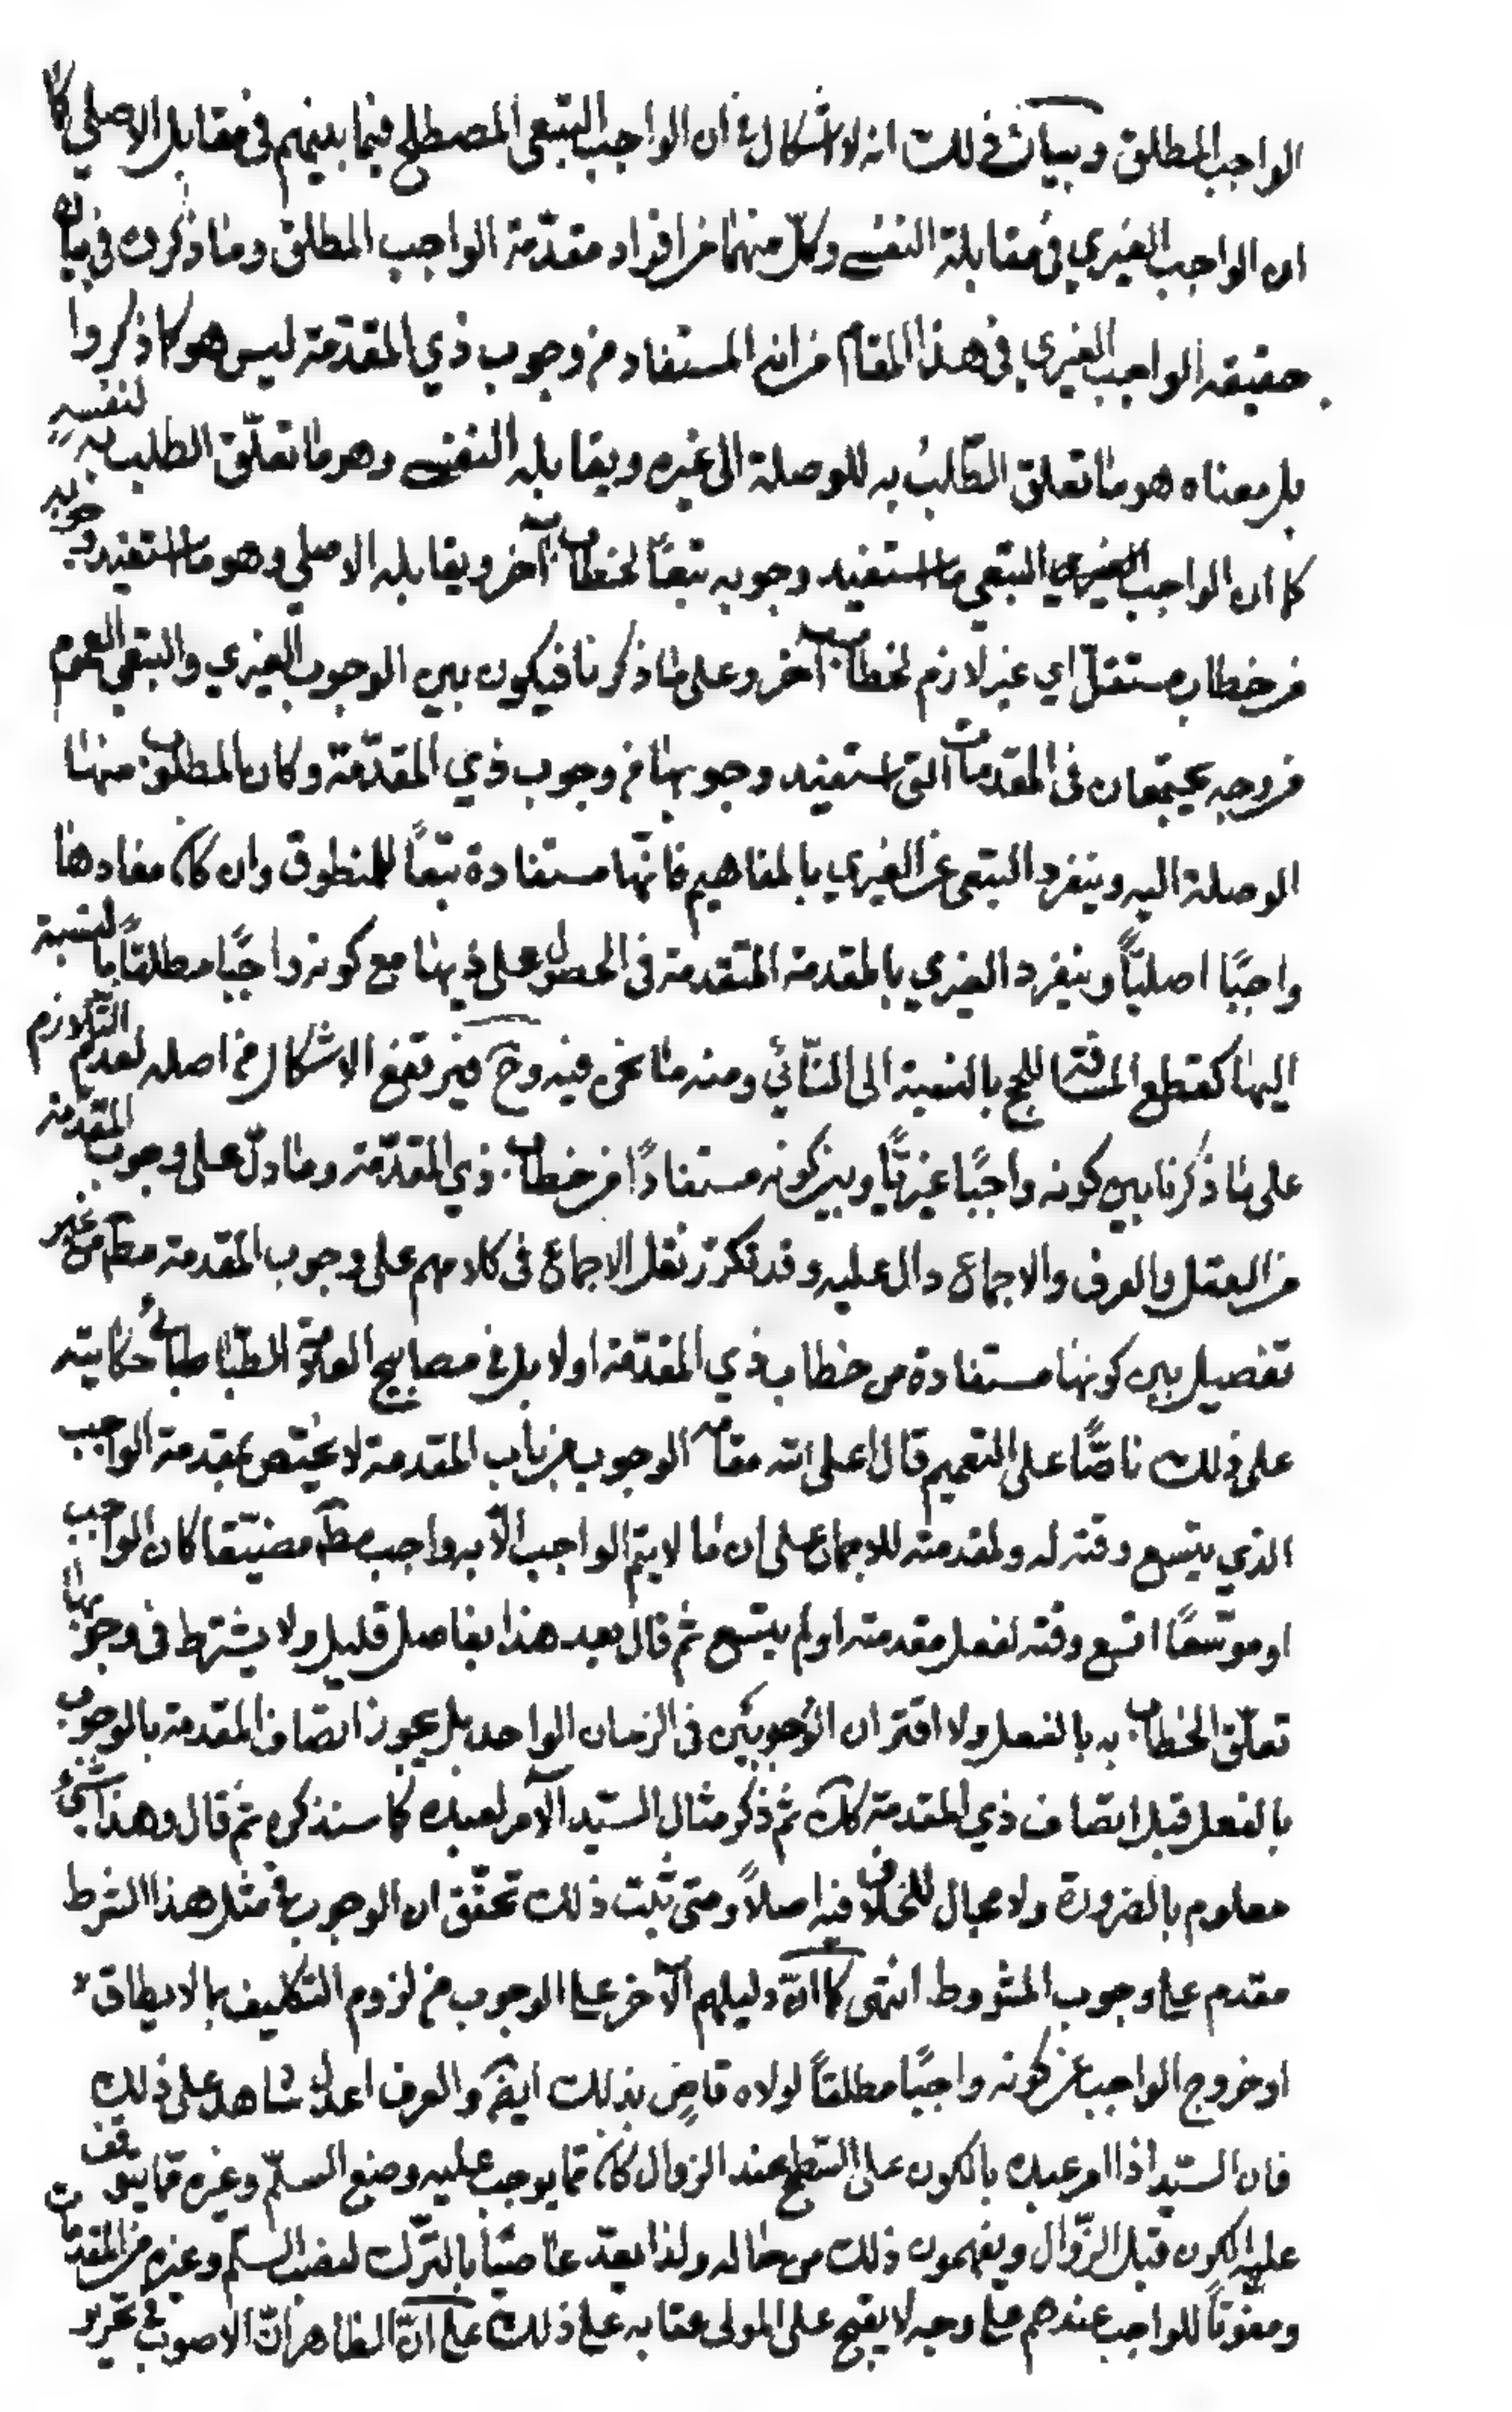 الواجب المطلق وبيان ذلك انه لا اشكال في ان الواجب التبعي المصطلح فيما بينهم في مقابل الاصلي كما
ان الواجب الغيري في مقابلة النفسي وكل منهما من افراد مقدّمة الواجب المطلق وما ذكروه في بيان
حقيقة الواجب الغيري في هذا المقام من انه المستفاد من وجوب ذي المقدّمة ليس هو كما ذكروا
بل معناه هو ما تعلق الطّلب به للوصلة الى غيره ويقابله النفسي وهو ما تعلّق الطلب به لنفسه
كما ان الواجب الغيري التبعي ما استفيد وجوبه تبعًا لخطاب آخر ويقابله الاصلي وهو ما استفيد وجوبه
من خطاب مستقلّ اي غير لازم لخطاب آخر وعلى ما ذكرنا فيكون بين الوجوب الغيري والتبعي العموم
من وجه يجتمعان في المقدمات التي استفيد وجوبها من وجوب ذي المقدّمة وكان المطلوب منها
الوصلة اليه وينفرد التبعي عن الغيري بالمفاهيم فانّها مستفادة تبعًا للمنطوق وان كان مفادها
واجبًا اصليًّا وينفرد الغيري بالمقدمة المتقدمة في الحصول على ذيها مع كونه واجبًا مطلقًا بالنسبة
اليها كقطع المسافة للحج بالنسبة الى النّائي ومنه ما نحن فيه وح فيرتفع الاشكال من اصله لعدم التّلازم
على ما ذكرنا بين كونه واجبًا غيريًّا وبين كونه مستفادًا من خطاب ذي المقدّمة وما دلّ على وجوب المقدمة
من العقل والعرف والاجماع دال عليه وقد تكرّر نقل الاجماع في كلامهم على وجوب المقدمة مط من غير
تفصيل بين كونها مستفادة من خطاب ذي المقدّمة اولا بل في مصابيح العلامة الطّباطبائي حكايته
على ذلك ناصًّا على التعميم قال اعلى الله مقامه الوجوب من باب المقدمة لا يختص بمقدمة الواجب
الذي يتسع وقته له ولمقدمته للاجماع على ان ما لا يتم الواجب الّا به واجب مط مضيّقا كان الواجب
او موسّعًا اتسع وقته لفعل مقدمته او لم يتسع ثم قال بعد هذا بفاصل قليل ولا يشترط في وجوبها
تعلّق الخطاب به بالفعل ولا اقتران الوجوبين في الزمان الواحد بل يجوز اتصاف المقدمة بالوجوب
بالفعل قبل اتصاف ذي المقدمة كك ثم ذكر مثال السّيد الآمر لعبده كما سنذكره ثم قال وهذا شيء
معلوم بالضرورة ولا مجال للخلاف فيه اصلاً ومتى ثبت ذلك تحقّق ان الوجوب في مثل هذا الشرط
مقدم على وجوب المشروط انتهى كما انّ دليلهم الآخر على الوجوب من لزوم التكليف بما لا يطاق
او خروج الواجب عن كونه واجبًا مطلقًا لولاه قاضٍ بذلك ايضًا والعرف اعدل شاهد على ذلك
فان السّيد اذا امر عبده بالكون على السّطح عند الزوال كان مما يوجب عليه وضع السلّم وغيره مما يتوقف
عليه الكون قبل الزّوال ويفهمون ذلك من حاله ولذا يعدّ عاصيًا بالترك لنصب السلّم وغيره من المقدمات
ومفوّتًا للواجب عندهم على وجه لا يقبح على المولى عقابه على ذلك على انّ الظاهر انّ الاصوب في تحرير